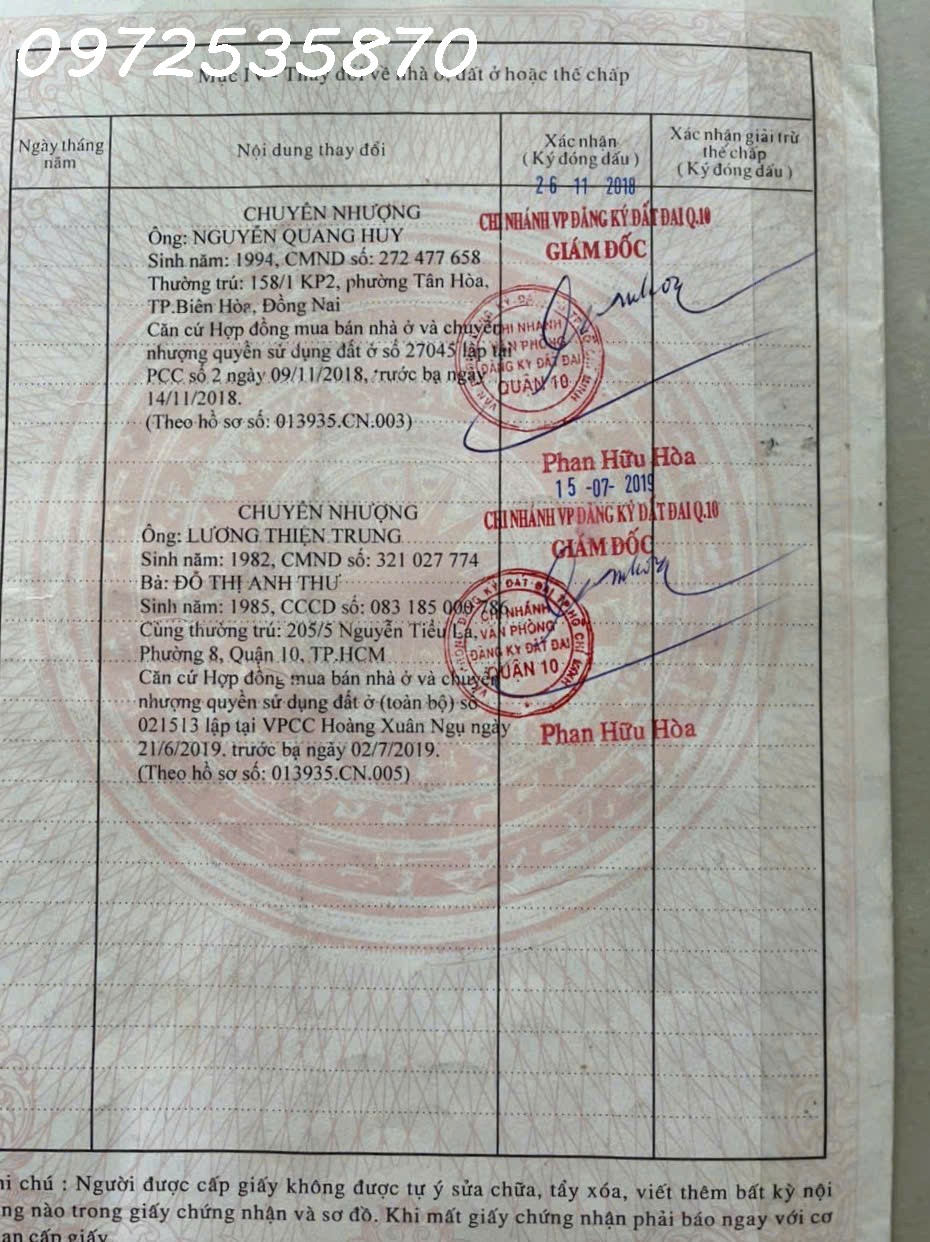 0972535870
Mục IV - Thay đổi về nhà ở, đất ở hoặc thế chấp
Ngày tháng năm
Nội dung thay đổi
Xác nhận
( Ký đóng dấu )
Xác nhận giải trừ
thế chấp
( Ký đóng dấu )
26 11 2018
CHUYỂN NHƯỢNG
Ông: NGUYỄN QUANG HUY
Sinh năm: 1994, CMND số: 272 477 658
Thường trú: 158/1 KP2, phường Tân Hòa,
TP.Biên Hòa, Đồng Nai
Căn cứ Hợp đồng mua bán nhà ở và chuyển
nhượng quyền sử dụng đất ở số 27045 lập tại
PCC số 2 ngày 09/11/2018, trước bạ ngày
14/11/2018.
(Theo hồ sơ số: 013935.CN.003)
CHI NHÁNH VP ĐĂNG KÝ ĐẤT ĐAI Q.10
GIÁM ĐỐC
CHI NHÁNH
VĂN PHÒNG
ĐĂNG KÝ ĐẤT ĐAI
QUẬN 10
Phan Hữu Hòa
15 -07- 2019
CHUYỂN NHƯỢNG
Ông: LƯƠNG THIỆN TRUNG
Sinh năm: 1982, CMND số: 321 027 774
Bà: ĐỖ THỊ ANH THƯ
Sinh năm: 1985, CCCD số: 083 185 000 786
Cùng thường trú: 205/5 Nguyễn Tiểu La,
Phường 8, Quận 10, TP.HCM
Căn cứ Hợp đồng mua bán nhà ở và chuyển
nhượng quyền sử dụng đất ở (toàn bộ) số
021513 lập tại VPCC Hoàng Xuân Ngụ ngày
21/6/2019. trước bạ ngày 02/7/2019.
(Theo hồ sơ số: 013935.CN.005)
CHI NHÁNH VP ĐĂNG KÝ ĐẤT ĐAI Q.10
GIÁM ĐỐC
CHI NHÁNH
VĂN PHÒNG
ĐĂNG KÝ ĐẤT ĐAI
QUẬN 10
Phan Hữu Hòa
hi chú : Người được cấp giấy không được tự ý sửa chữa, tẩy xóa, viết thêm bất kỳ nội
ng nào trong giấy chứng nhận và sơ đồ. Khi mất giấy chứng nhận phải báo ngay với cơ
an cấp giấy